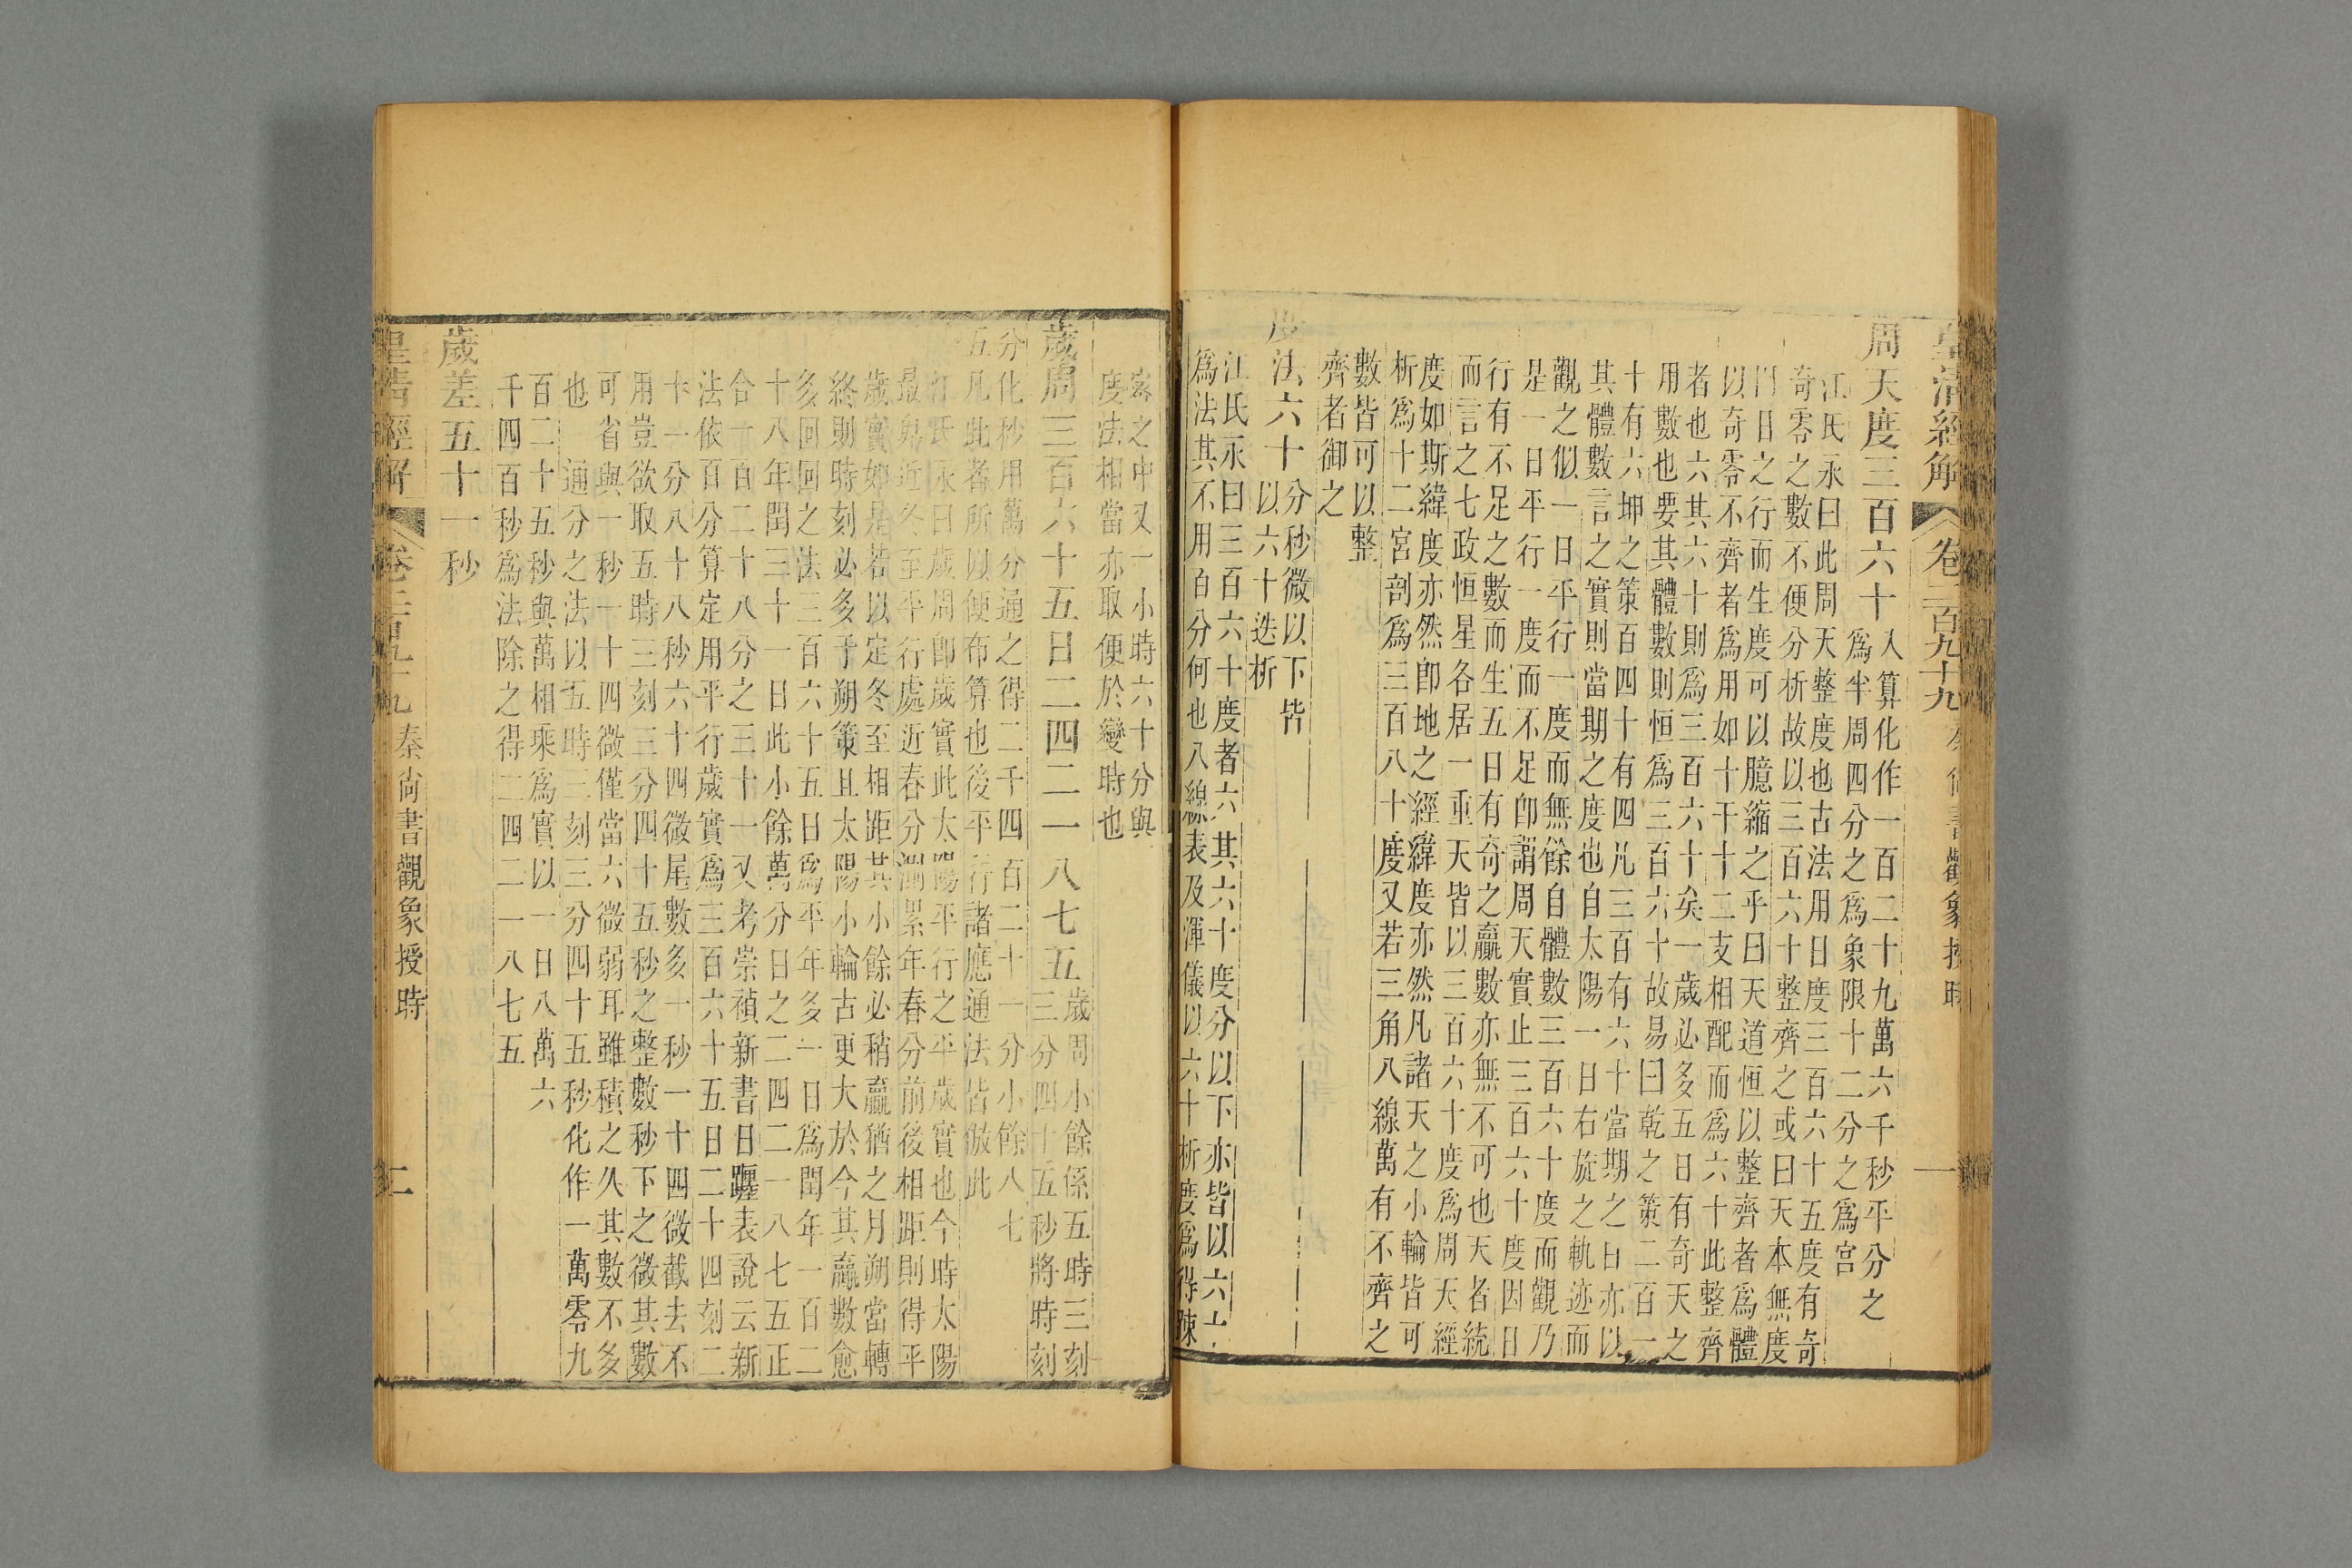 皇清經解 卷二百九十九 秦尚書觀象授時 一
周天度三百六十
入算化作一百二十九萬六千秒平分之
爲半周四分之爲象限十二分之爲宮
江氏永曰此周天整度也古法用日度三百六十五度有奇
奇零之數不便分析故以三百六十整齊之或曰天本無度
因日之行而生度可以臆縮之乎曰天道恒以整齊者爲體
以奇零不齊者爲用如十干十二支相配而爲六十此整齊
者也六其六十則爲三百六十矣一歲必多五日有奇天之
用數也要其體數則恒爲三百六十故易曰乾之策二百一
十有六坤之策百四十有四凡三百有六十當期之日亦以
其體數言之實則當期之度也自太陽一日右旋之軌迹而
觀之似一日平行一度而無餘自體數三百六十度而觀乃
是一日平行一度而不足卽謂周天實止三百六十度因日
行有不足之數而生五日有奇之贏數亦無不可也天者統
而言之七政恒星各居一重天皆以三百六十度爲周天經
度如斯緯度亦然卽地之經緯度亦然凡諸天之小輪皆可
析爲十二宮剖爲三百八十度又若三角八線萬有不齊之
數皆可以整
齊者御之
度法六十
分秒微以下皆
以六十迭析
江氏永曰三百六十度者六其六十度分以下亦皆以六十
爲法其不用百分何也八線表及渾儀以六十析度爲得疎
密之中又一小時六十分與
度法相當亦取便於變時也
歲周三百六十五日二四二一八七五
歲周小餘係五時三刻
三分四十五秒將時刻
分化秒用萬分通之得二千四百二十一分小餘八七
五凡此者所以便布算也後平行諸應通法皆倣此
江氏永曰歲周卽歲實此太陽平行之平歲實也今時太陽
最卑近冬至平行處近春分測累年春分前後相距則得平
歲實如是若以定冬至相距其小餘必稍贏猶之月朔當轉
終則時刻必多于朔策且太陽小輪古更大於今其贏數愈
多回回之法三百六十五日爲平年多一日爲閏年一百二
十八年閏三十一日此小餘萬分日之二四二一八七五正
合一百二十八分之三十一又考崇禎新書日躔表說云新
法依百分算定用平行歲實爲三百六十五日二十四刻二
十一分八十八秒六十四微尾數多一秒一十四微截去不
用豈欲取五時三刻三分四十五秒之整數秒下之微其數
可省與一秒一十四微僅當六微弱耳雖積之久其數不多
也 通分之法以五時三刻三分四十五秒化作一萬零九
百二十五秒與萬相乘爲實以一日八萬六
千四百秒爲法除之得二四二一八七五
歲差五十一秒
皇清經解 卷二百九十九 秦尚書觀象授時 二